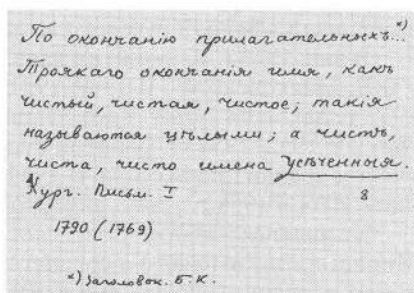 По окончанію прилагательныхъ...*)
Троякаго окончанія имя, какъ
чистый, чистая, чистое; такія
называются цѣлыми; а чистъ,
чиста, чисто имена усѣченныя.
Кург. Письм. I 8
1790 (1769)
*) Заголовок. Б.К.